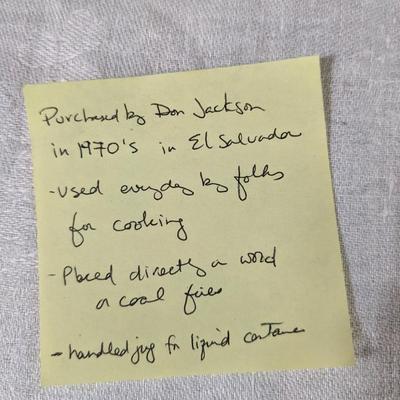 Purchased by Don Jackson
in 1970's in El Salvador
- used everyday by folks
for cooking
- Placed directly on wood
or coal fires
- handled jug for liquid container